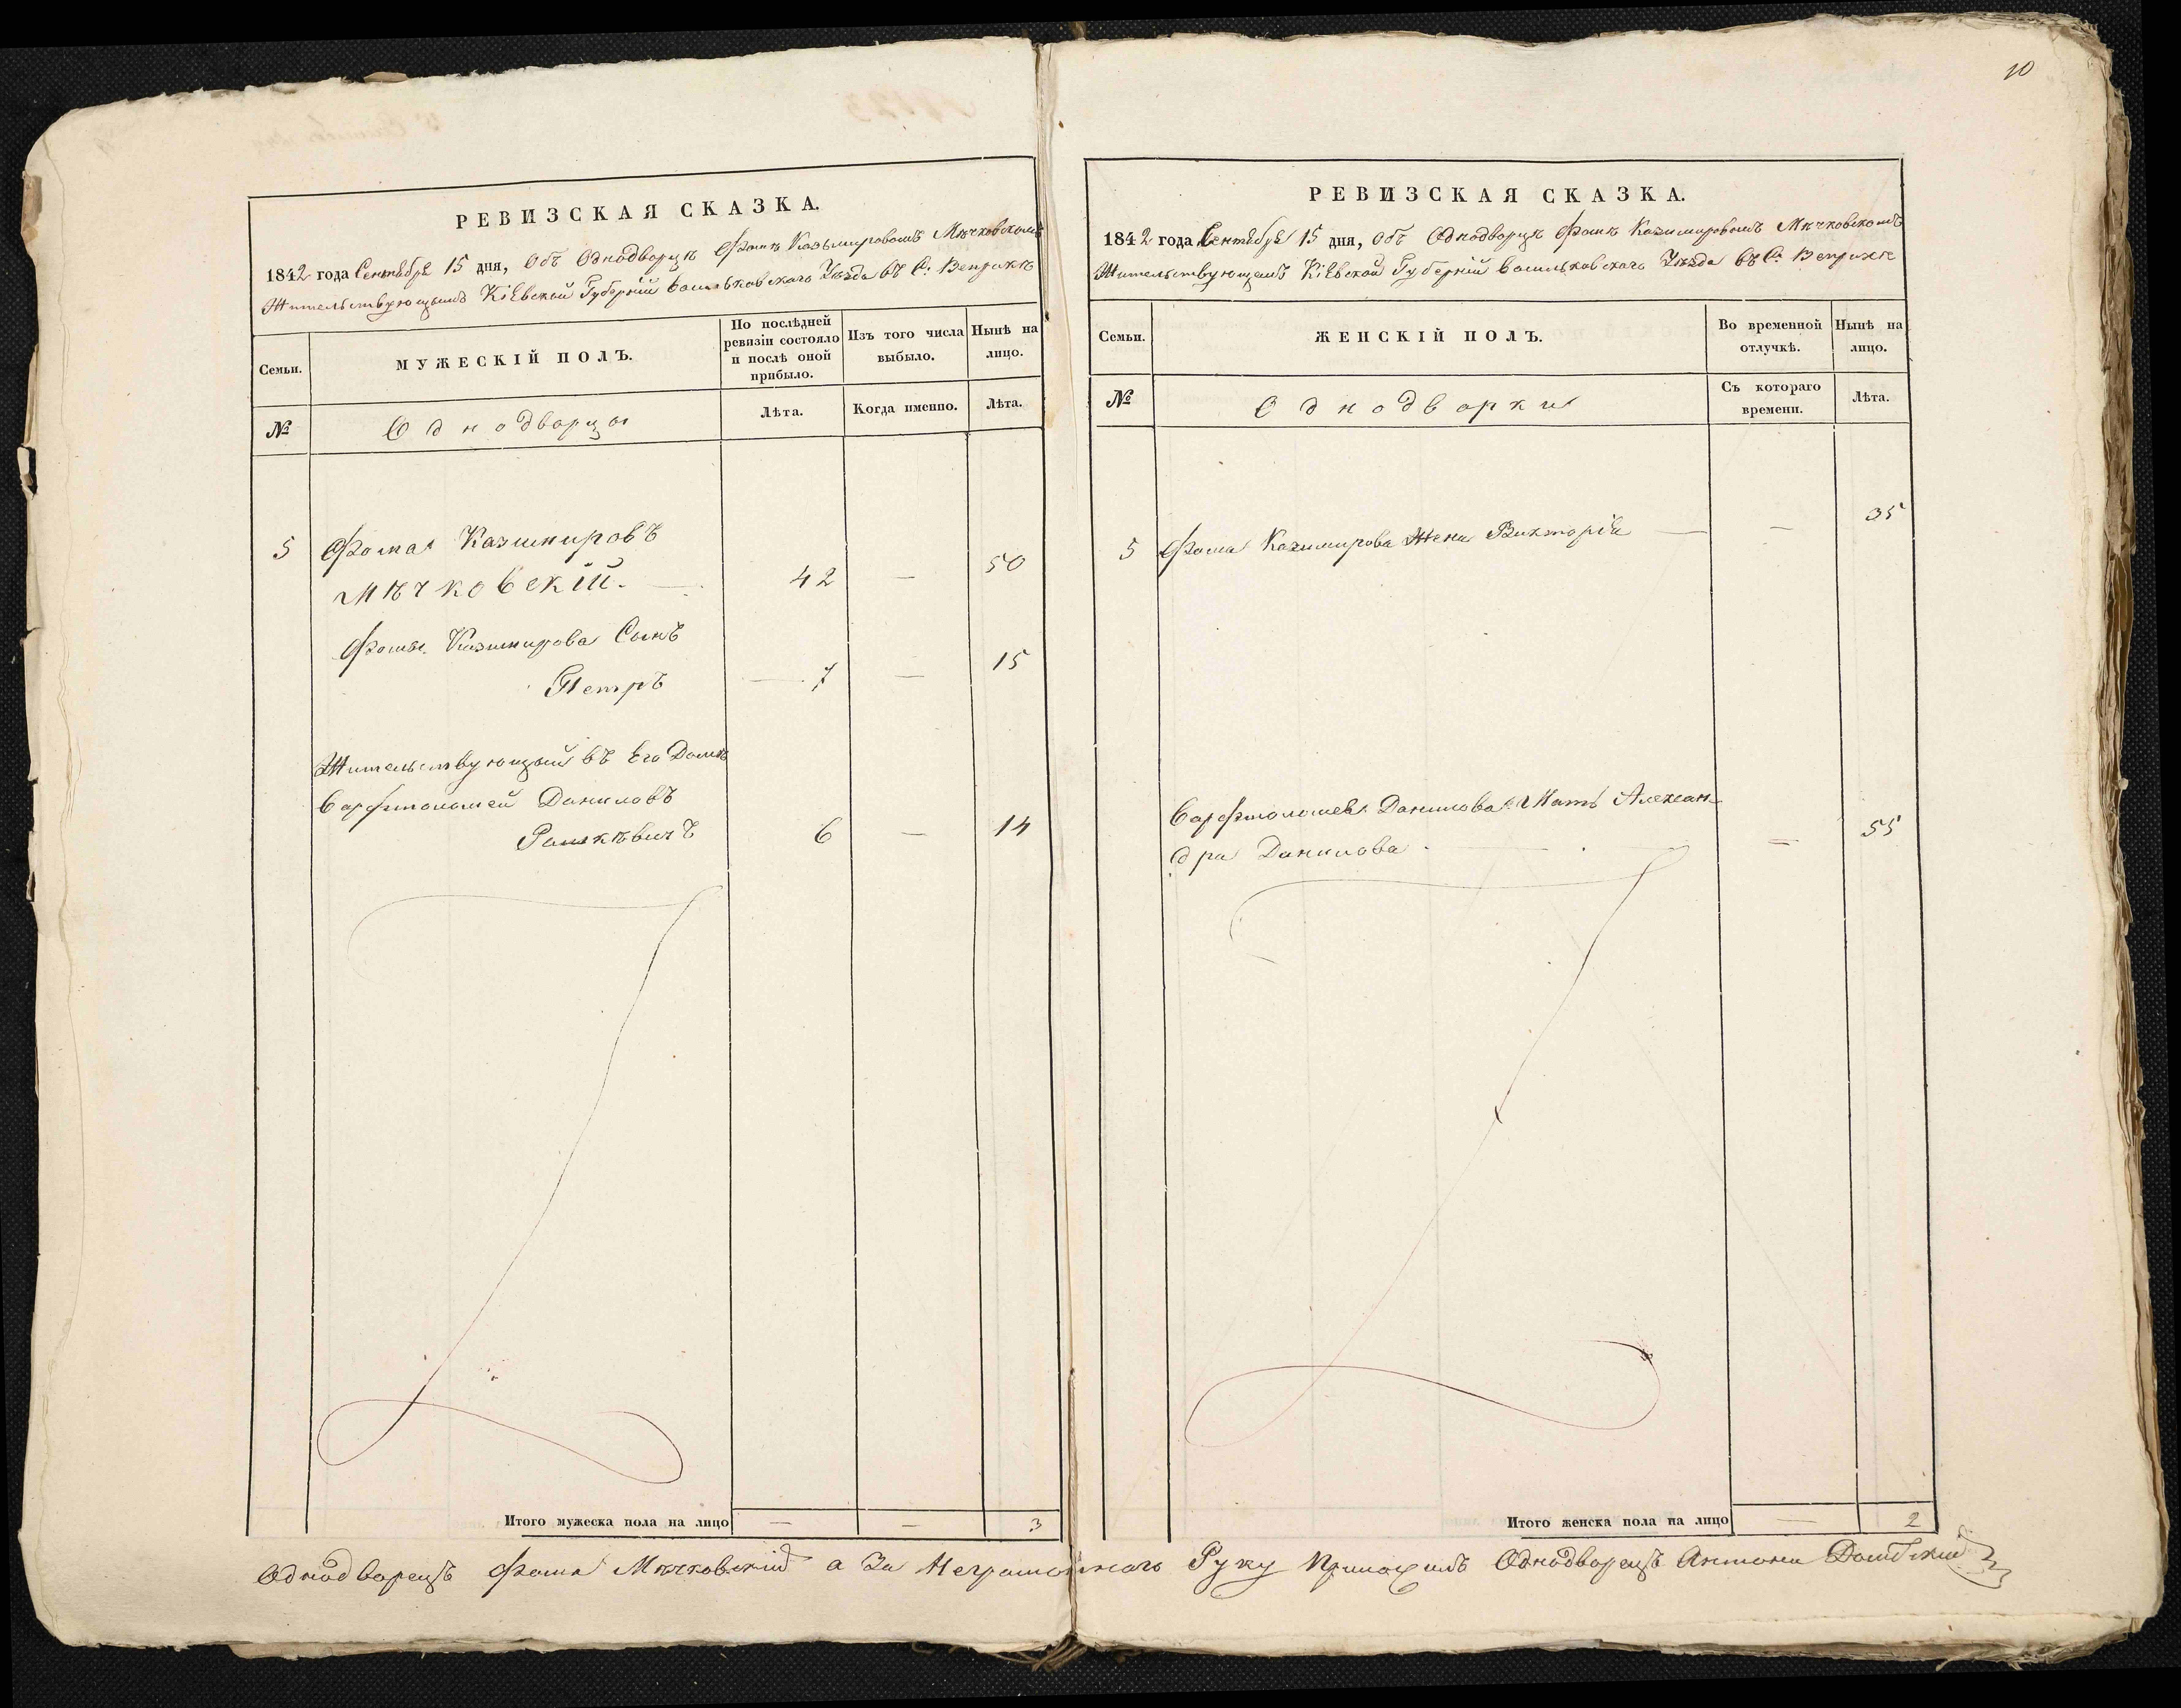 10
РЕВИЗСКАЯ СКАЗКА.
1842 года Сентября 15 дня, Объ Однодворцѣ Фомѣ Казьмировомъ Мѣчковскомъ
Жительствующымъ Кіевской Губерніи Васильковскаго Уѣзда въ С: Веприкѣ
Семьи.
МУЖЕСКІЙ ПОЛЪ.
По послѣдней
ревизіи состояло
и послѣ оной
прибыло.
Изъ того числа
выбыло.
Нынѣ на
лицо.
№
Однодворцы
Лѣта.
Когда именно.
Лѣта.
5 Фома Казимировъ
Мѣчковскій. — 42 — 50
Фомы Казимирова Сынъ
Петръ — 7 — 15
Жительствующый въ Его Домѣ
Варфтоломей Даниловъ
6 — 14
Итого мужеска пола на лицо — — 3
РЕВИЗСКАЯ СКАЗКА.
1842 года Сентября 15 дня, Объ Однодворцѣ Фомѣ Казимировомъ Мѣчковскомъ
Жительствующемъ Кіевской Губерніи Васильковскаго Уѣзда въ С: Веприкѣ
Семьи.
ЖЕНСКІЙ ПОЛЪ.
Во временной
отлучкѣ.
Нынѣ на
лицо.
№
Однодворки
Съ котораго
времени.
Лѣта.
5 Фома Казимирова Жена Викторія — — 35
Варфтоломея Данилова Мать Алексан-
дра Данилова — — 55
Итого женска пола на лицо — 2
Однодворецъ Фома Мѣчковскій а За Неграмотнаго Руку Приложилъ Однодворецъ Антони